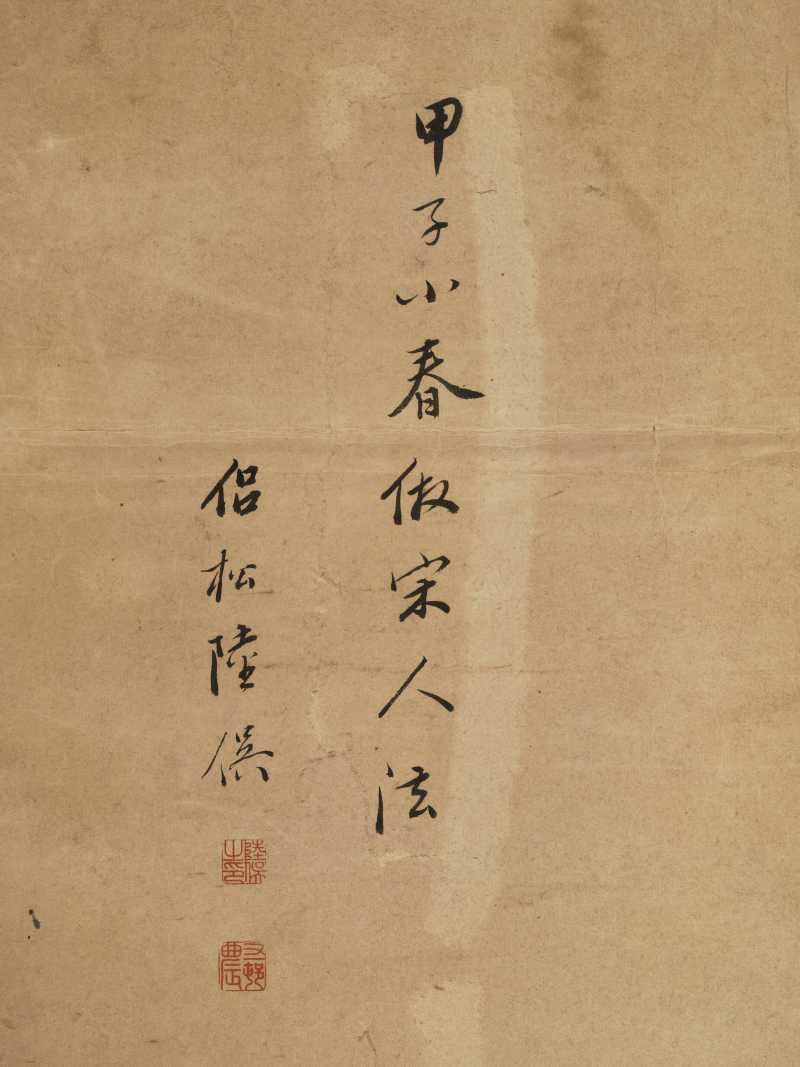 甲子小春倣宋人法
侶松陸俁